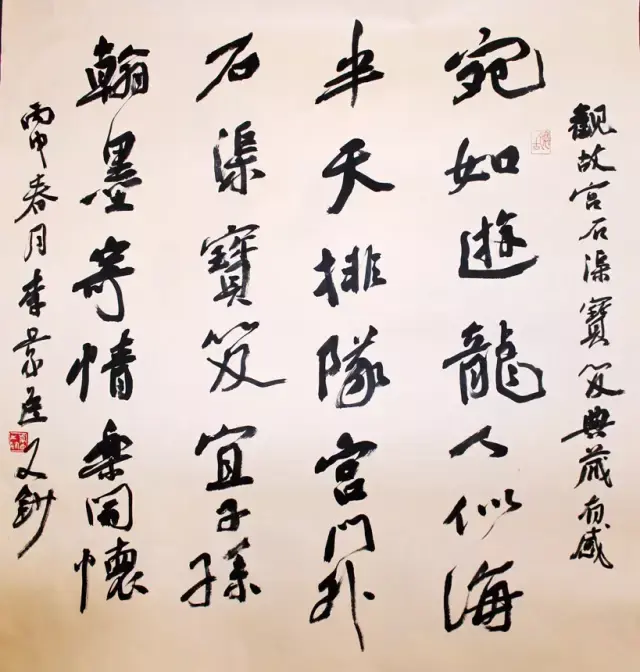 觀故宫石渠寶笈典藏有感
宛如遊龍人似海
半天排隊宫門外
石渠寶笈宜子孫
翰墨寄情樂開懷
丙申春月李景又鈔